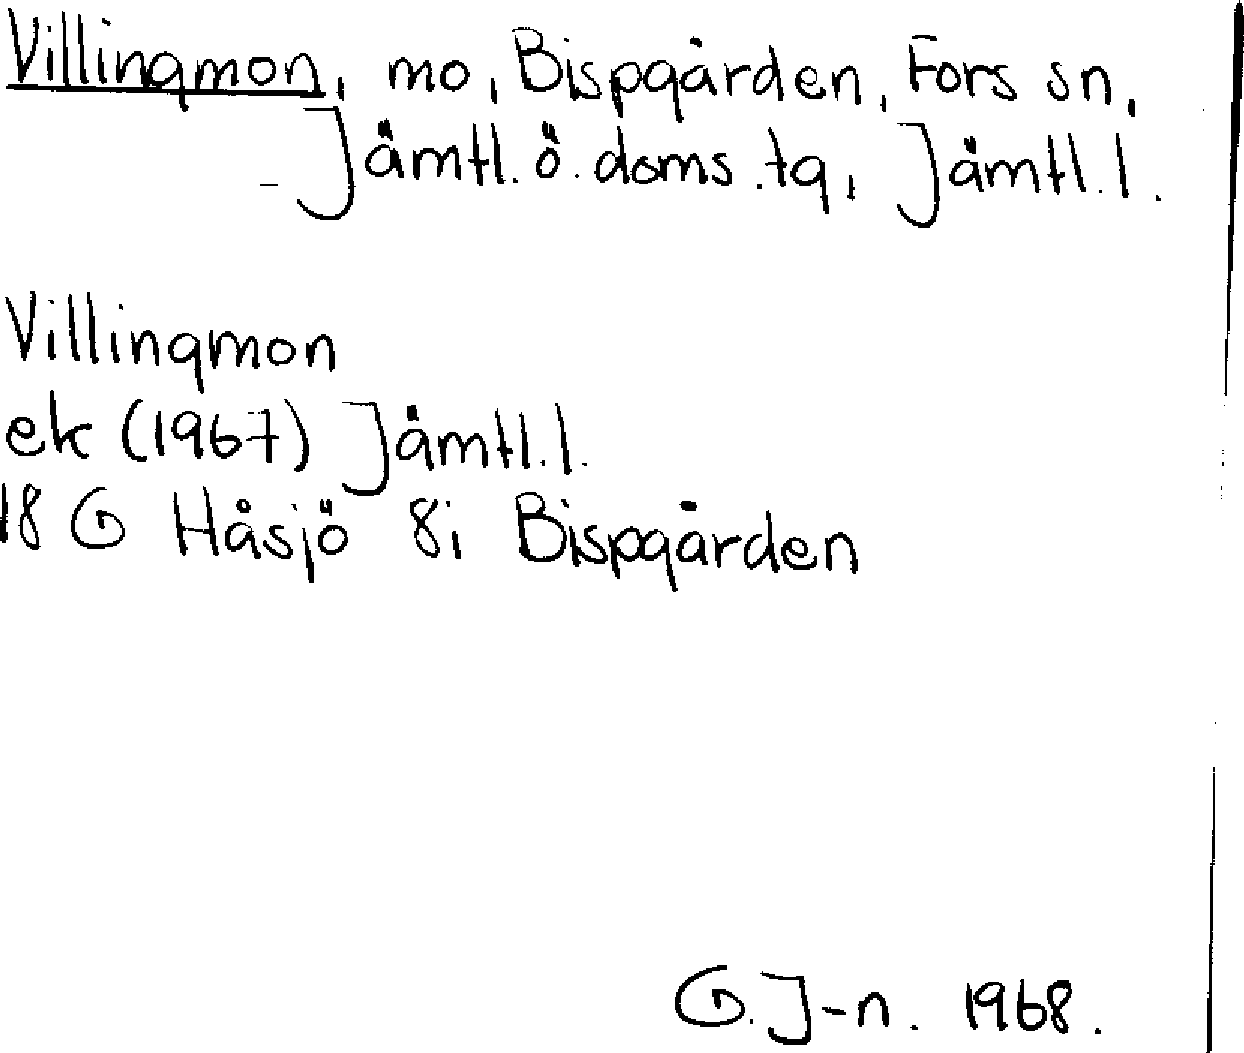 Villingmon, mo, Bispgården, Fors sn,
Jämtl. ö. doms. tg, Jämtl. l.
Villingmon
ek (1967) Jämtl. l.
18 G Håsjö 8i Bispgården
G. J-n. 1968.